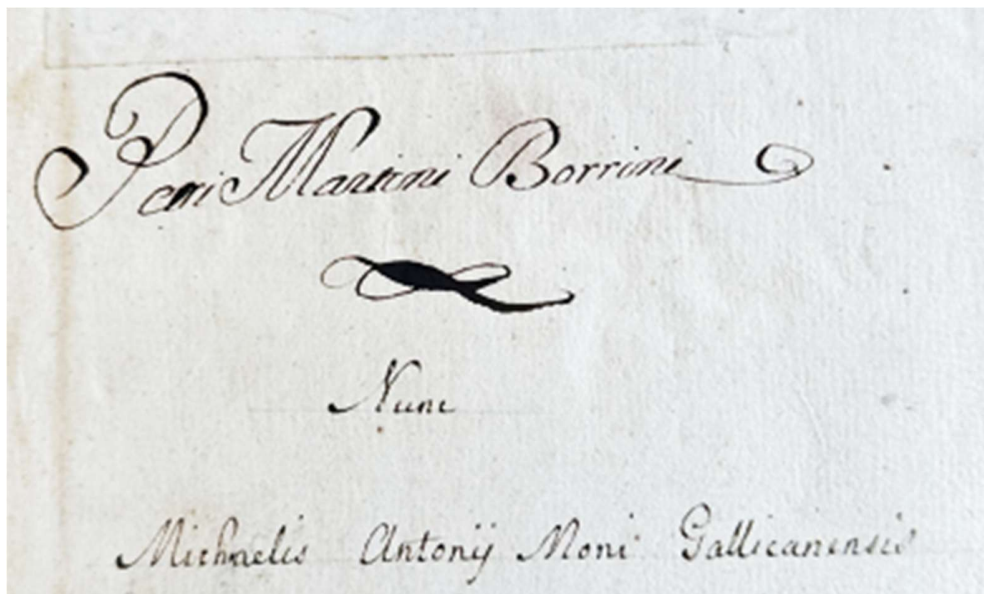 Petri Martini Borrini
Nunc
Michaelis Antonij Moni Gallicanensis